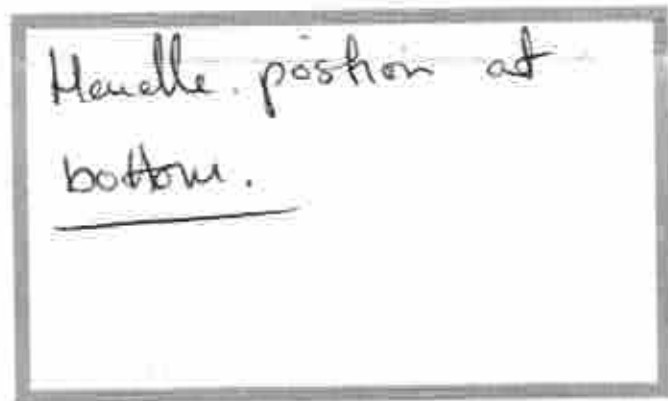 Handle position at
bottom.